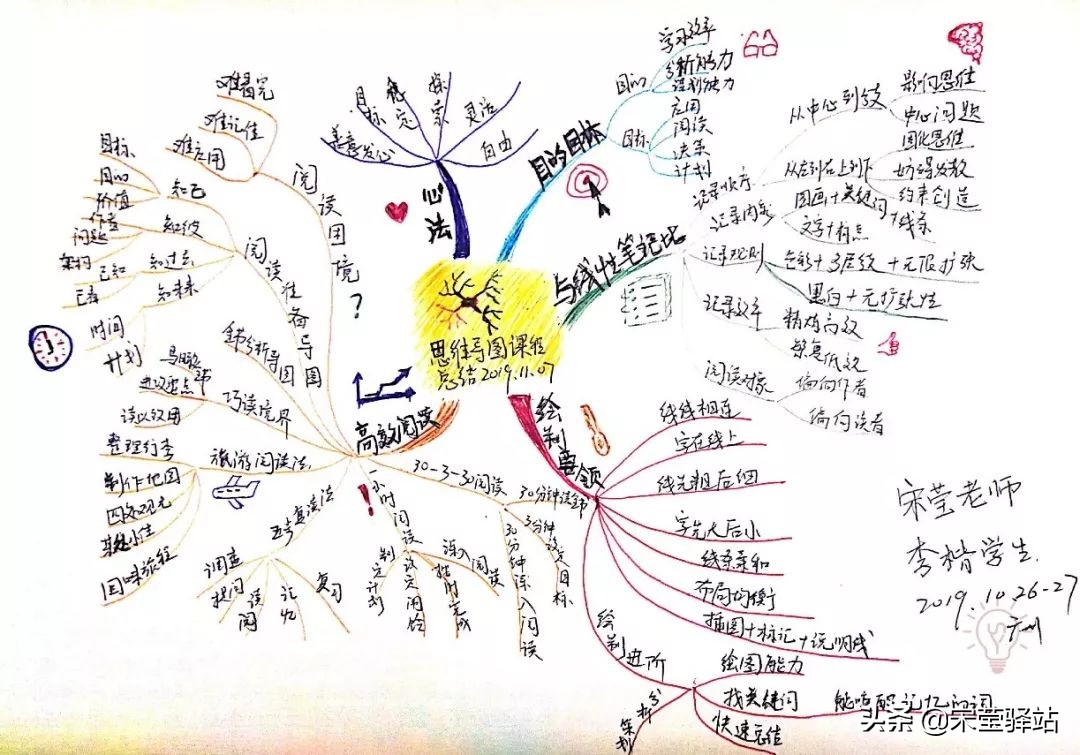 思维导图课程
总结2019.11.07
心法
善意发心
目标
稳定
探索
灵活
自由
目的目标
目的
学习效率
分析能力
目标
应用
阅读
决策
计划
与线性笔记比
记录顺序
从中心到四
影响思维
中心问题
从左到右上到下
固化思维
妨碍发散
约束创造
记录内容
图画+关键词+线条
文字+标点
记录规则
色彩+多层级+无限扩张
黑白+无扩张性
记录效率
精炼高效
繁复低效
阅读对象
偏向作者
偏向读者
绘制要领
线线相连
字在线上
线先粗后细
字先大后小
线条柔和
布局均衡
插图+标记+说明线
绘制进阶
绘图能力
找关键词
能唤醒记忆的词
快速定位
分析
策划
高效阅读
阅读困境?
难看完
难记住
难应用
阅读准备导图
知己
目标
目的
价值
知彼
作者
问题
架构
知过去
已知
知未来
时间
计划
章节分析导图
巧读境界
读以致用
旅游阅读法
整理行李
制作地图
回味旅程
五步复读法
调查
提问
阅读
记忆
复习
一小时阅读
制定计划
设定闹铃
按时完成
深入阅读
30-3-30阅读
30分钟读章节
3分钟设定目标
30分钟深入阅读
宋莹老师
李楷学生.
2019.10.26-27
广州
头条@宋莹驿站